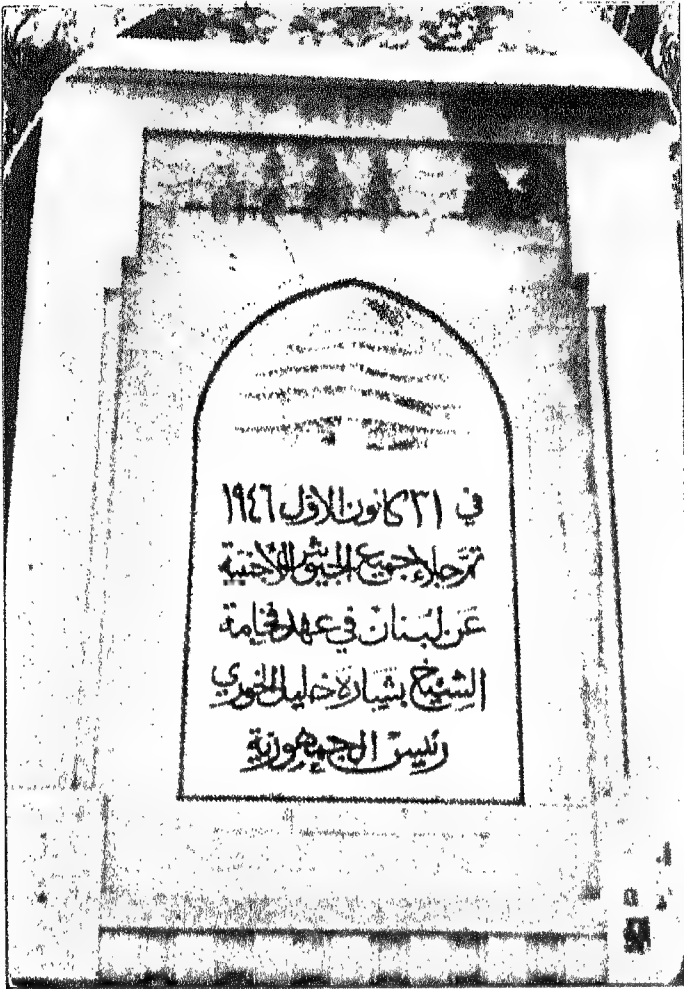 في ٣١ كانون الاوّل ١٩٤٦
تمّ جلاء جميع الجيوش الاجنبية
عَن لبنان في عهد فخامة
الشيخ بشارة خليل الخوري
رئيس الجمهورية